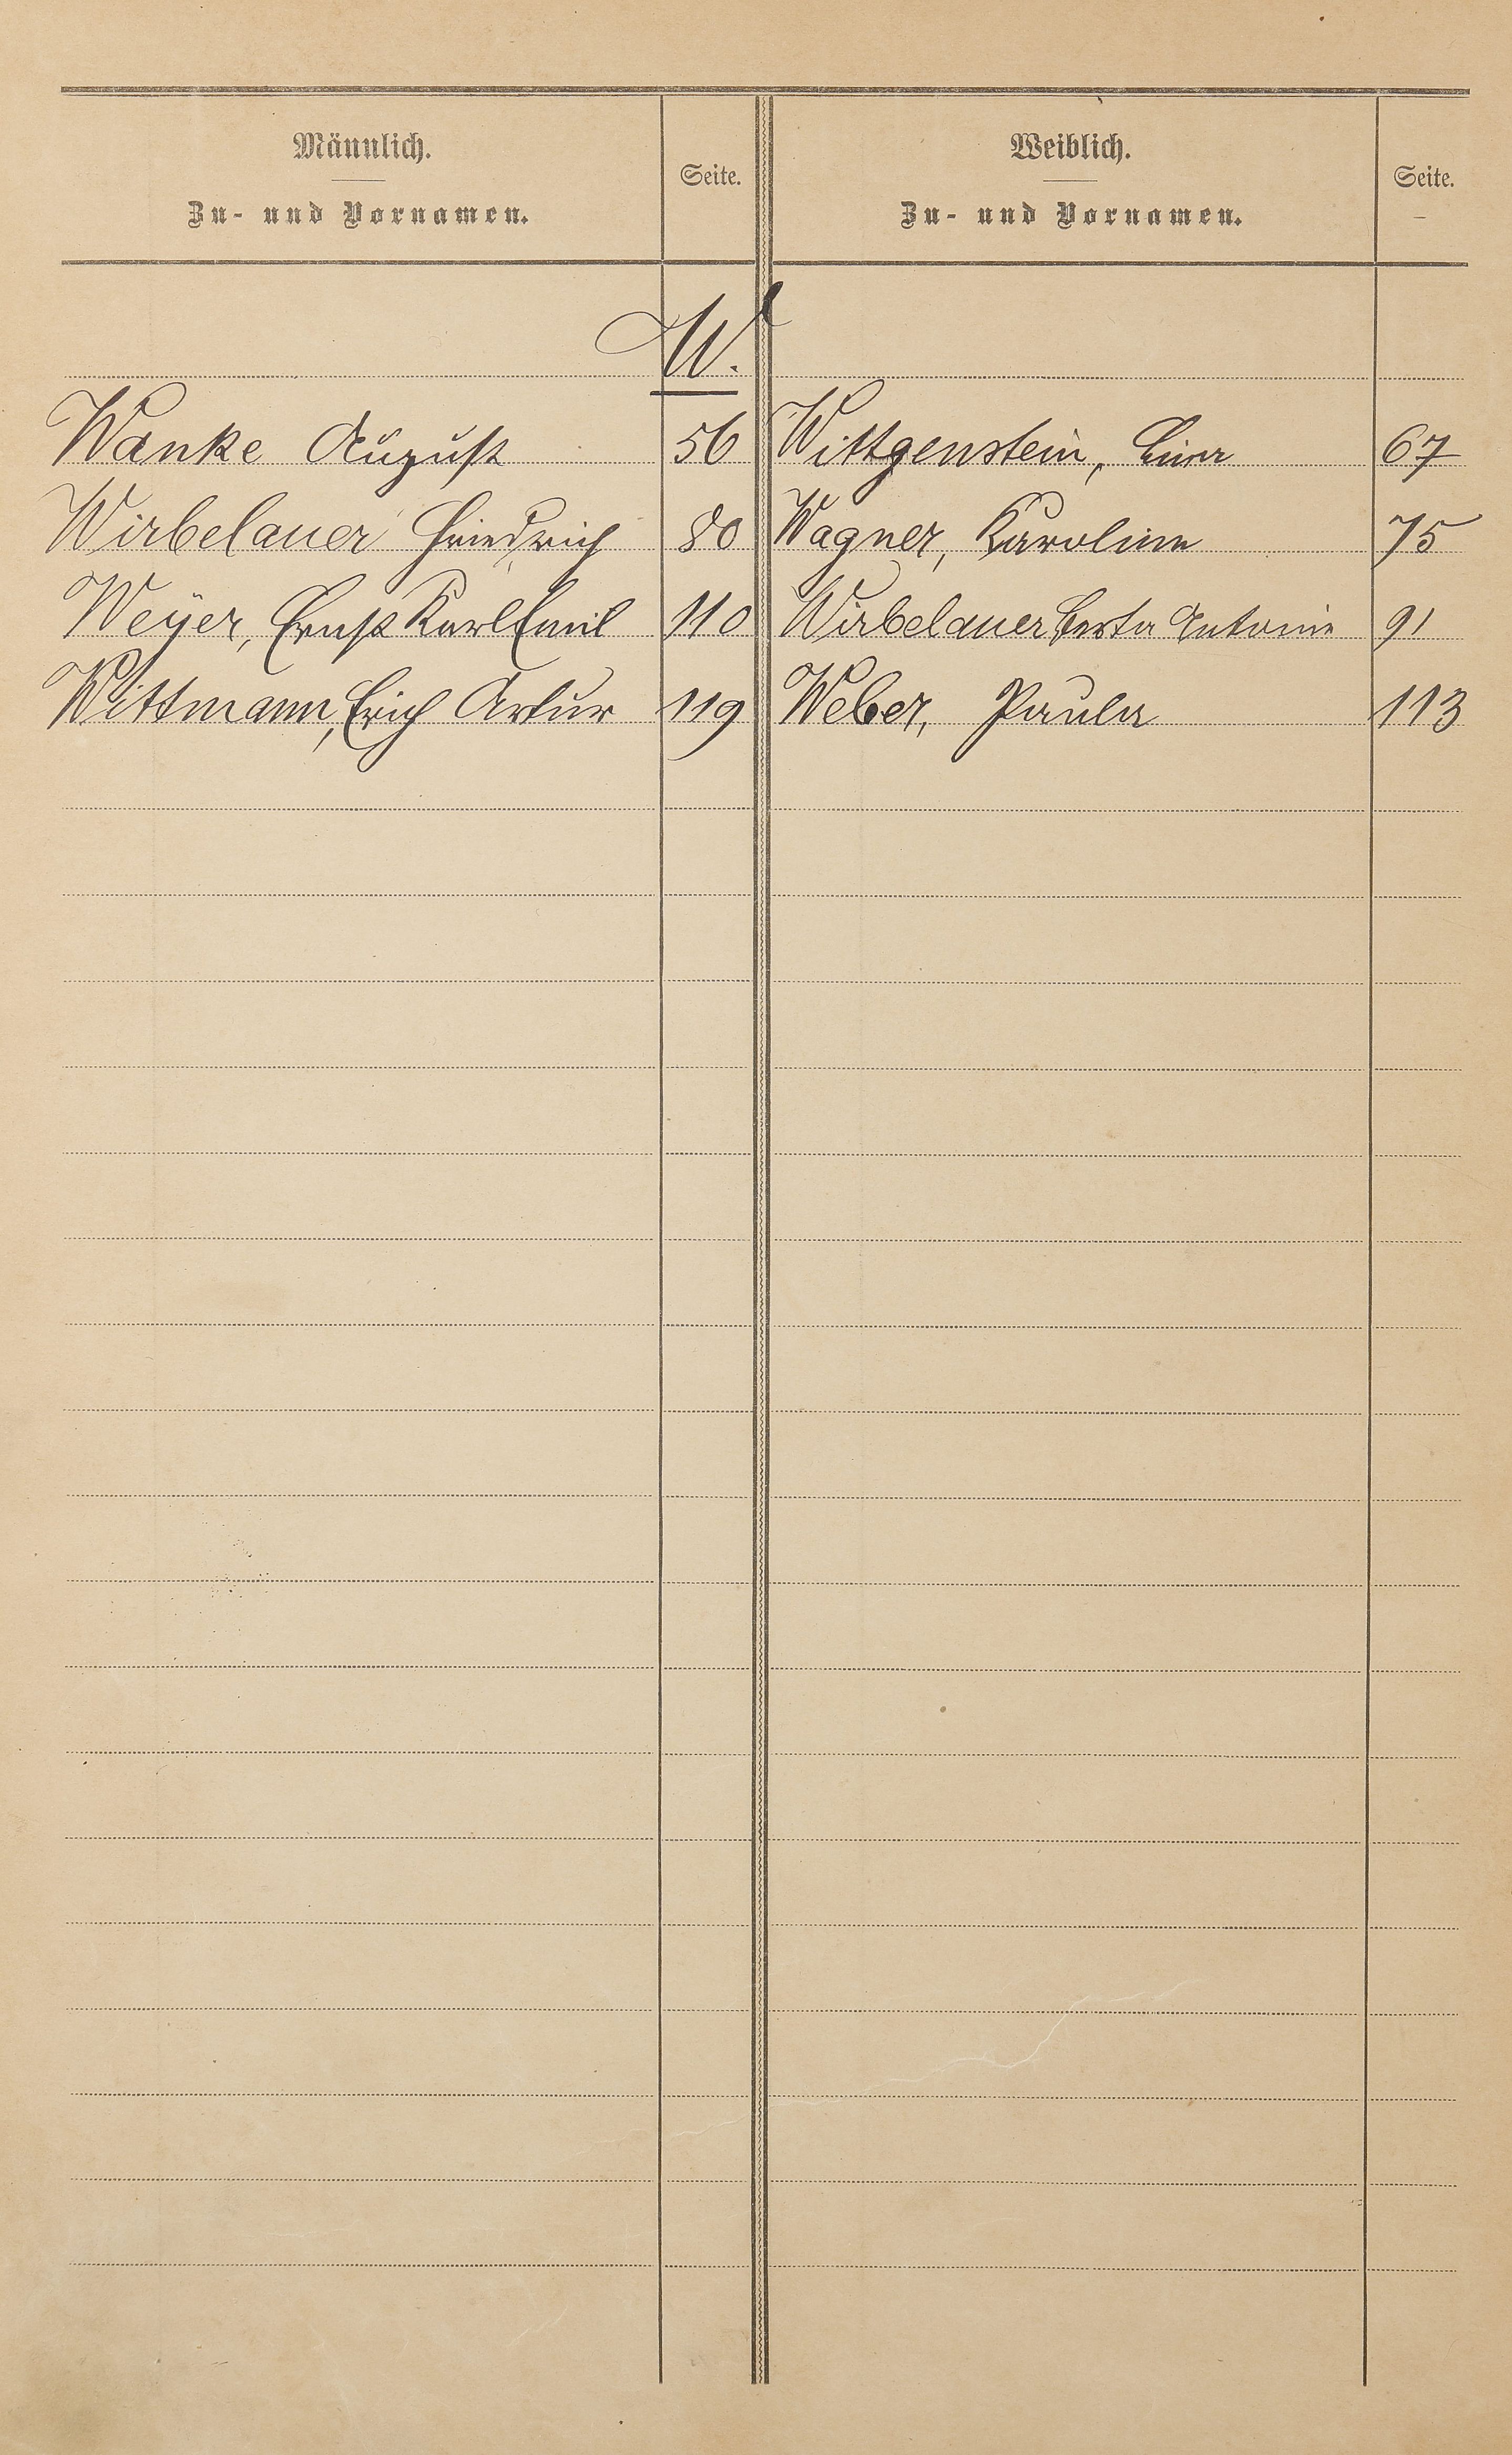 Männlich.
Zu- und Vornamen.
Seite.
Weiblich.
Zu- und Vornamen.
Seite.
W.
Wanke August 56 Wittgenstein, Lina 67
Wirbelauer Friedrich 80 Wagner, Karoline 75
Weÿer, Ernst Karl Emil 110 Wirbelauer Berta Antonie 91
Wittmann, Erich Artur 119 Weber, Paula 113